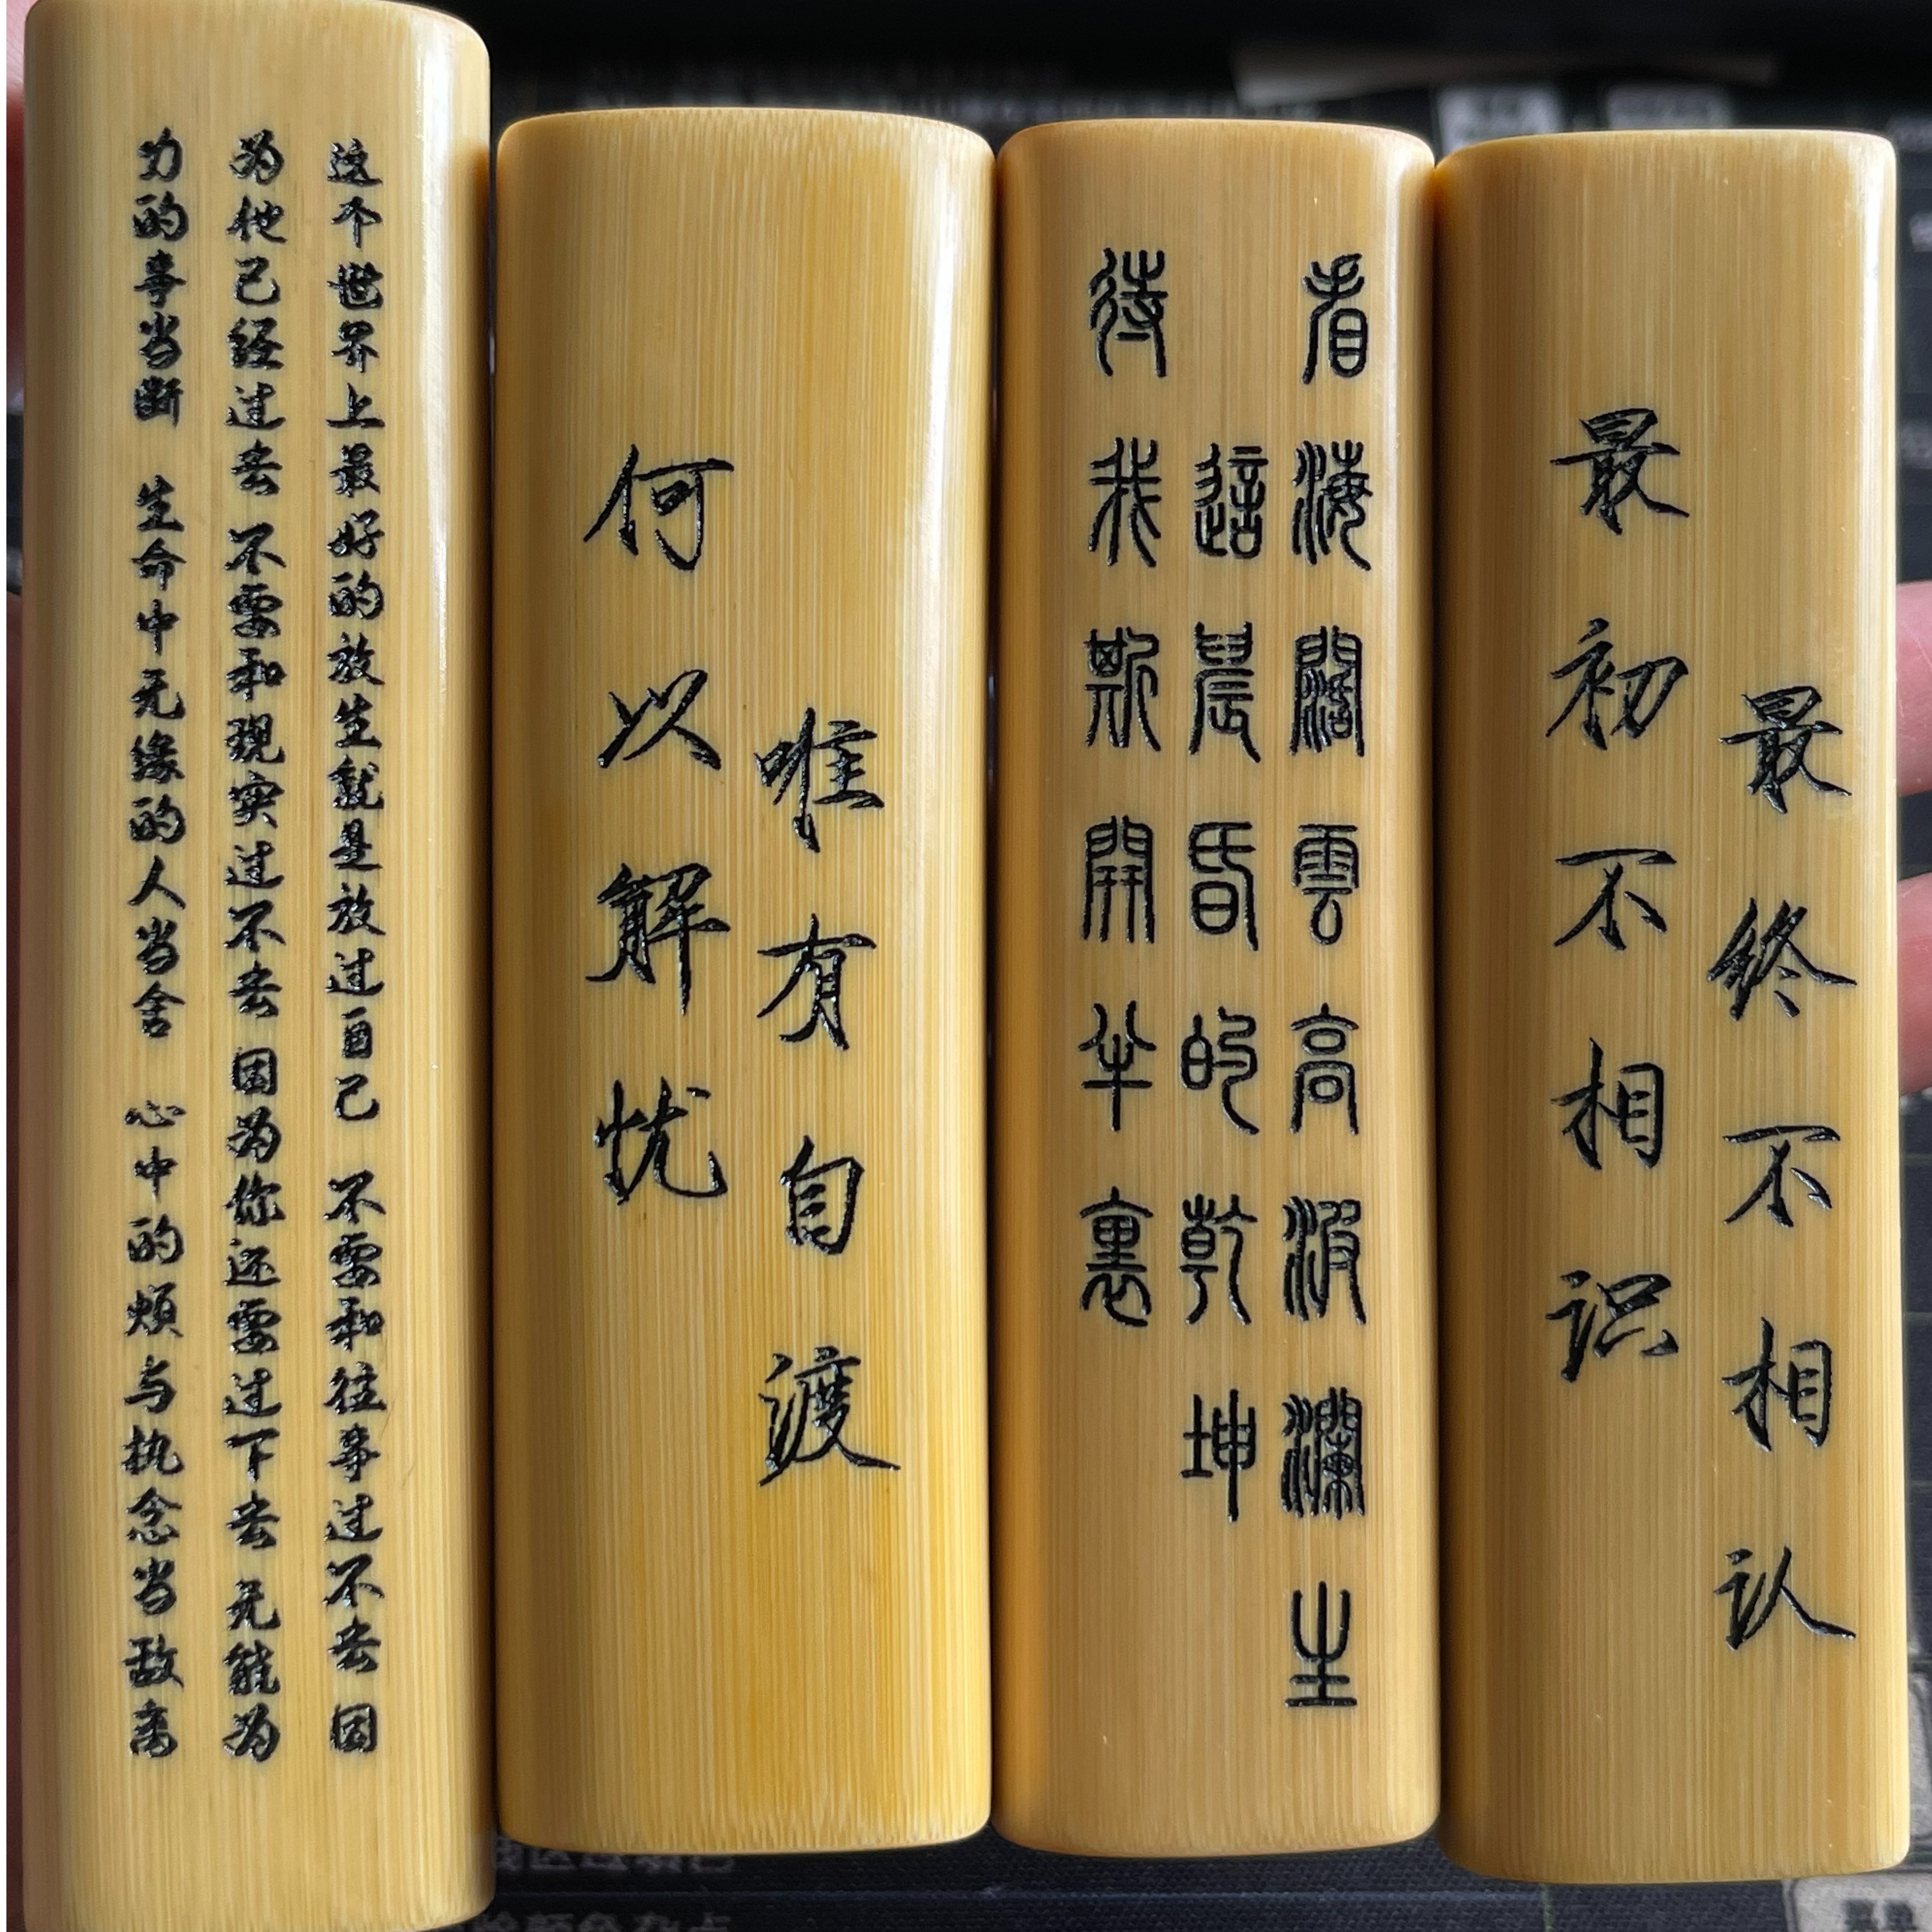 这个世界上最好的放生就是放过自己 不要和往事过不去 因
为他已经过去 不要和现实过不去 因为你还要过下去 无能为
力的事当断 生命中无缘的人当舍 心中的烦与执念当离
何以解忧
唯有自渡
看海闊雲高波瀾生
這晨昏的乾坤
待我斯開半裏
最初不相识
最终不相认